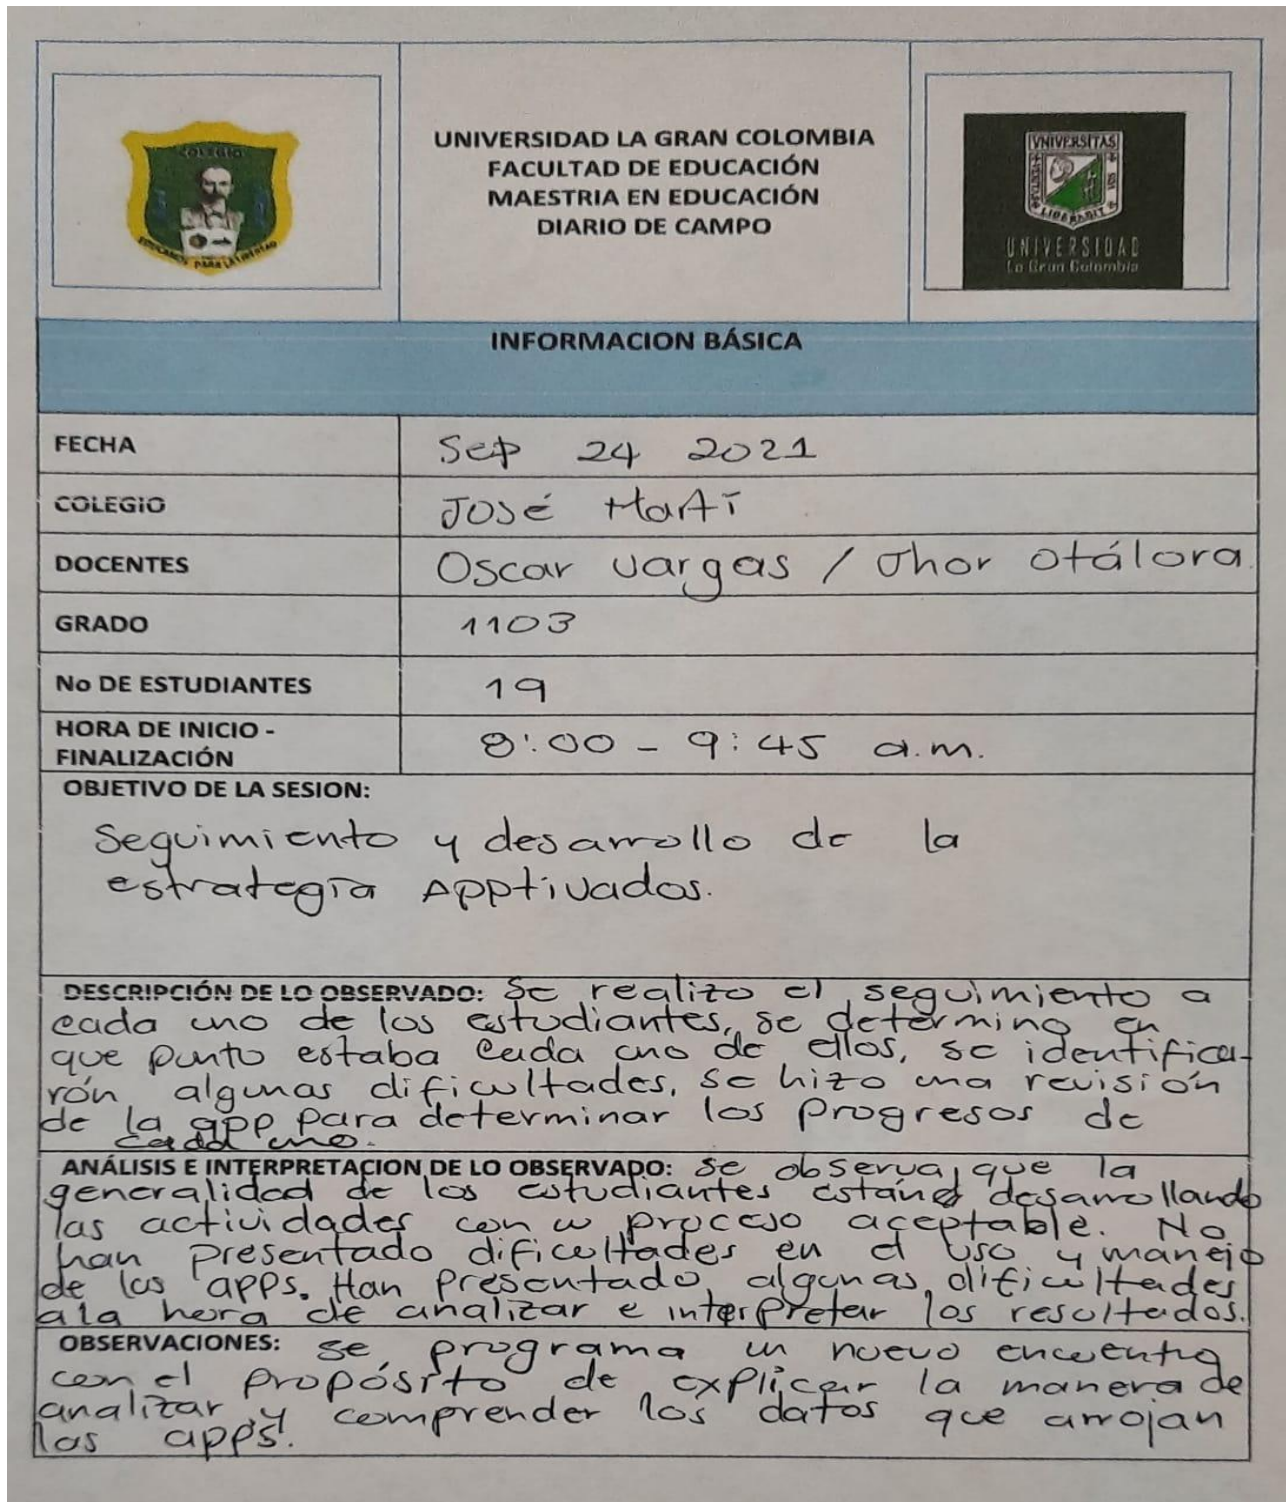 COLEGIO
EDUCANDO PARA LA LIBERTAD
UNIVERSIDAD LA GRAN COLOMBIA
FACULTAD DE EDUCACIÓN
MAESTRIA EN EDUCACIÓN
DIARIO DE CAMPO
VNIVERSITAS
LIBERABIT
UNIVERSIDAD
La Gran Colombia
INFORMACION BÁSICA
FECHA Sep 24 2021
COLEGIO José Martí
DOCENTES Oscar Vargas / Jhor Otálora.
GRADO 1103
No DE ESTUDIANTES 19
HORA DE INICIO -
FINALIZACIÓN 8:00 - 9:45 a.m.
OBJETIVO DE LA SESION:
Seguimiento y desarrollo de la
estrategia Apptivados.
DESCRIPCIÓN DE LO OBSERVADO: Se realizo el seguimiento a
cada uno de los estudiantes, se determino en
que punto estaba cada uno de ellos, se identifica-
rón algunas dificultades, se hizo una revisión
de la app para determinar los progresos de
cada uno.
ANÁLISIS E INTERPRETACION DE LO OBSERVADO: se observa, que la
generalidad de los estudiantes están desarrollando
las actividades con u proceso aceptable. No
han presentado dificultades en el uso y manejo
de las apps. Han presentado algunas dificultades
a la hora de analizar e interpretar los resultados.
OBSERVACIONES: se programa un nuevo encuentro
con el propósito de explicar la manera de
analizar y comprender los datos que arrojan
las apps.